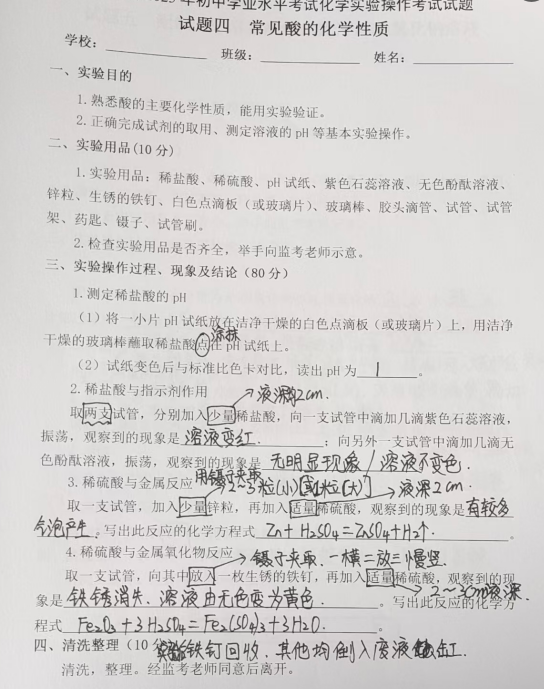 年初中学业水平考试化学实验操作考试试题
试题四 常见酸的化学性质
学校： 班级： 姓名：
一、实验目的
1.熟悉酸的主要化学性质，能用实验验证。
2.正确完成试剂的取用、测定溶液的 pH 等基本实验操作。
二、实验用品(10 分)
1.实验用品：稀盐酸、稀硫酸、pH 试纸、紫色石蕊溶液、无色酚酞溶液、
锌粒、生锈的铁钉、白色点滴板（或玻璃片）、玻璃棒、胶头滴管、试管、试管
架、药匙、镊子、试管刷。
2.检查实验用品是否齐全，举手向监考老师示意。
三、实验操作过程、现象及结论（80 分）
1.测定稀盐酸的 pH
（1）将一小片 pH 试纸放在洁净干燥的白色点滴板（或玻璃片）上，用洁净
涂抹
干燥的玻璃棒蘸取稀盐酸点在 pH 试纸上。
（2）试纸变色后与标准比色卡对比，读出 pH 为 1 。
2.稀盐酸与指示剂作用 液深约2cm.
取两支试管，分别加入少量稀盐酸，向一支试管中滴加几滴紫色石蕊溶液，
振荡，观察到的现象是 溶液变红. ；向另外一支试管中滴加几滴无
色酚酞溶液，振荡，观察到的现象是 无明显现象/溶液不变色.
用镊子夹取
3.稀硫酸与金属反应 2~3粒(小)[或1粒(大)] 液深2cm.
取一支试管，加入少量锌粒，再加入适量稀硫酸，观察到的现象是 有较多
气泡产生。写出此反应的化学方程式 Zn+H₂SO₄=ZnSO₄+H₂↑. 。
4.稀硫酸与金属氧化物反应 镊子夹取、一横二放三慢竖.
取一支试管，向其中放入一枚生锈的铁钉，再加入适量稀硫酸，观察到的现
2~3cm液深
象是 铁锈消失、溶液由无色变为黄色. 。写出此反应的化学方
程式 Fe₂O₃+3H₂SO₄=Fe₂(SO₄)₃+3H₂O. 。
四、清洗整理（10 分） 铁钉回收、其他均倒入废液缸.
清洗，整理。经监考老师同意后离开。